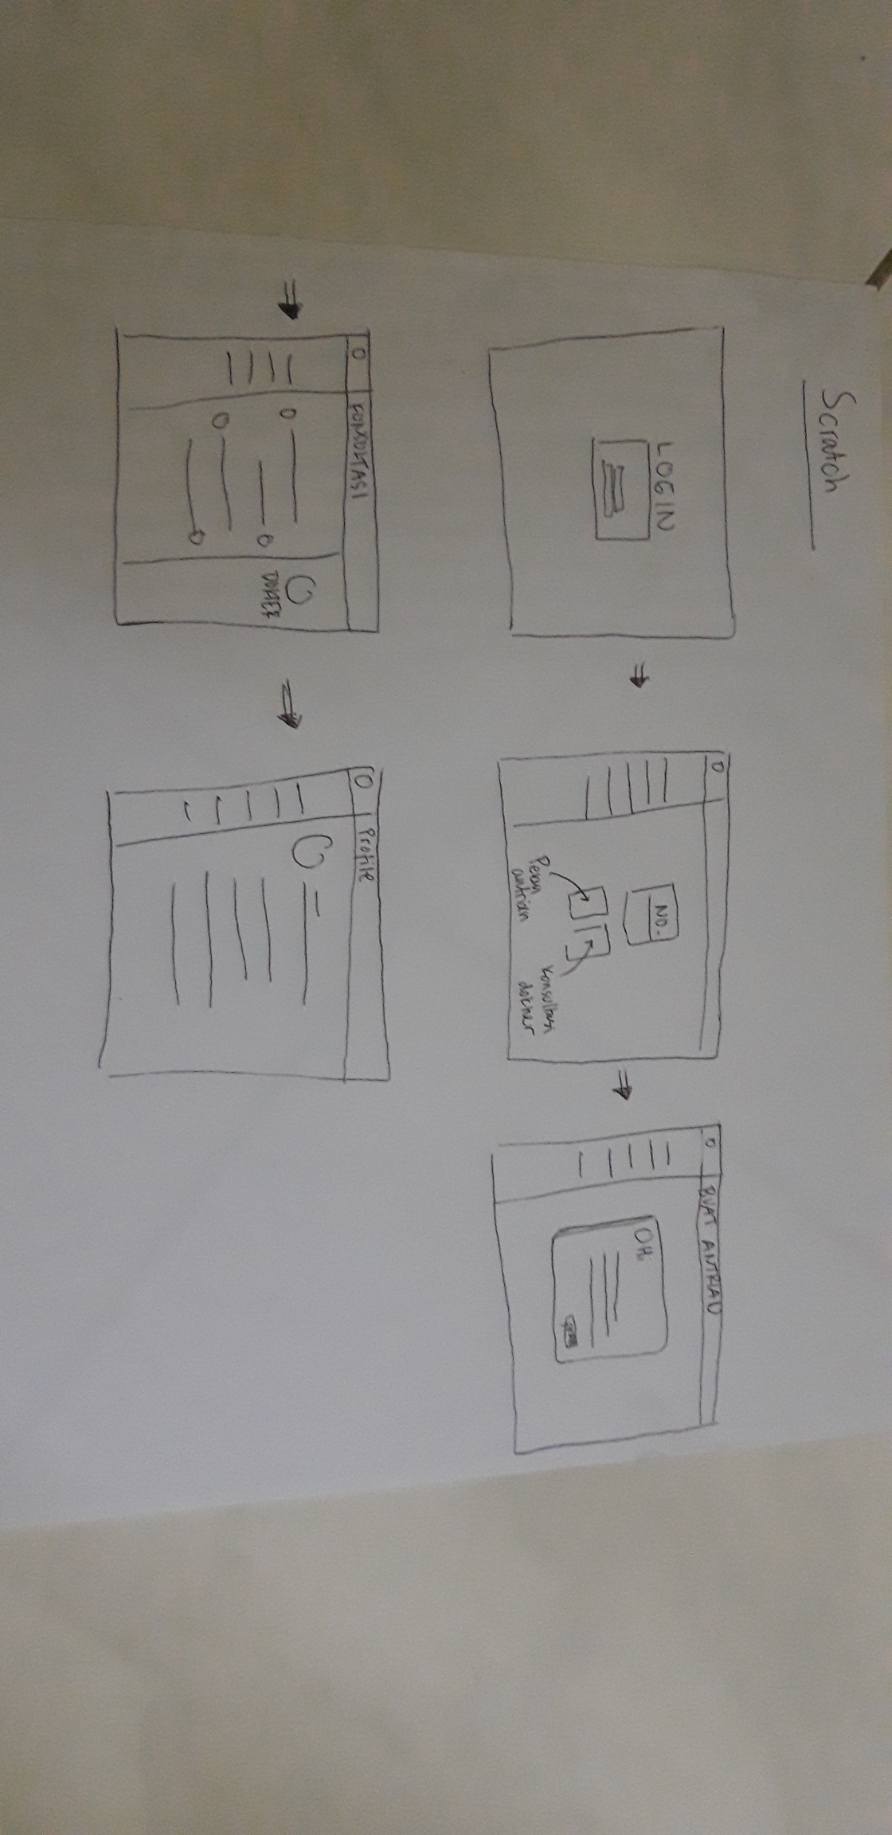 Scratch
LOGIN
NO.
Pesan
antrian
Konsultasi
dokter
BUAT ANTRIAN
OH.
KONSULTASI
DOKTER
Profile